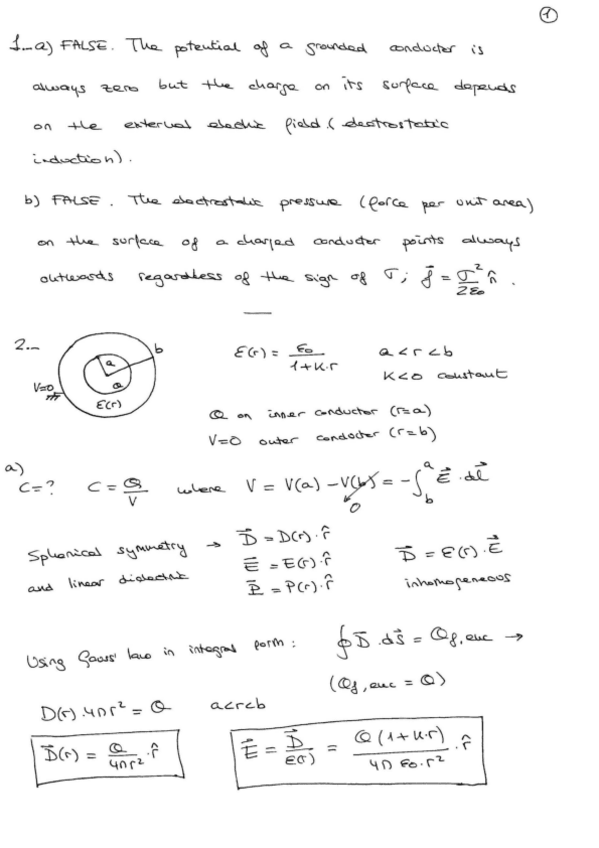 1
1_ a) FALSE. The potential of a grounded conductor is
always zero but the charge on its surface depends
on the external electric field (electrostatic
induction).
b) FALSE. The electrostatic pressure (force per unit area)
on the surface of a charged conductor points always
outwards regardless of the sign of σ; f⃗ = σ²/2ε₀ n̂.
2._
a b
V=0 Q
ε(r)
ε(r) = ε₀/(1+K·r) a<r<b
K<0 constant
Q on inner conductor (r=a)
V=0 outer conductor (r=b)
a)
C=? C = Q/V where V = V(a) - V(b) = -∫_b^a E⃗·dl⃗
0
Spherical symmetry → D⃗ = D(r)·r̂
and linear dielectric E⃗ = E(r)·r̂ D⃗ = ε(r)·E⃗
P⃗ = P(r)·r̂ inhomogeneous
Using Gauss' law in integral form: ∮D⃗·dS⃗ = Qf,enc →
(Qf,enc = Q)
D(r)·4πr² = Q a<r<b
D⃗(r) = Q/4πr² · r̂ E⃗ = D⃗/ε(r) = Q(1+K·r)/4πε₀·r² · r̂